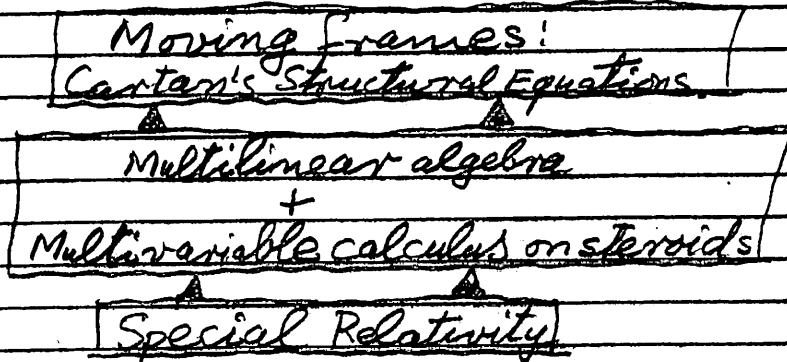 Moving frames:
Cartan's Structural Equations.
Multilinear algebra
+
Multivariable calculus on steroids
Special Relativity